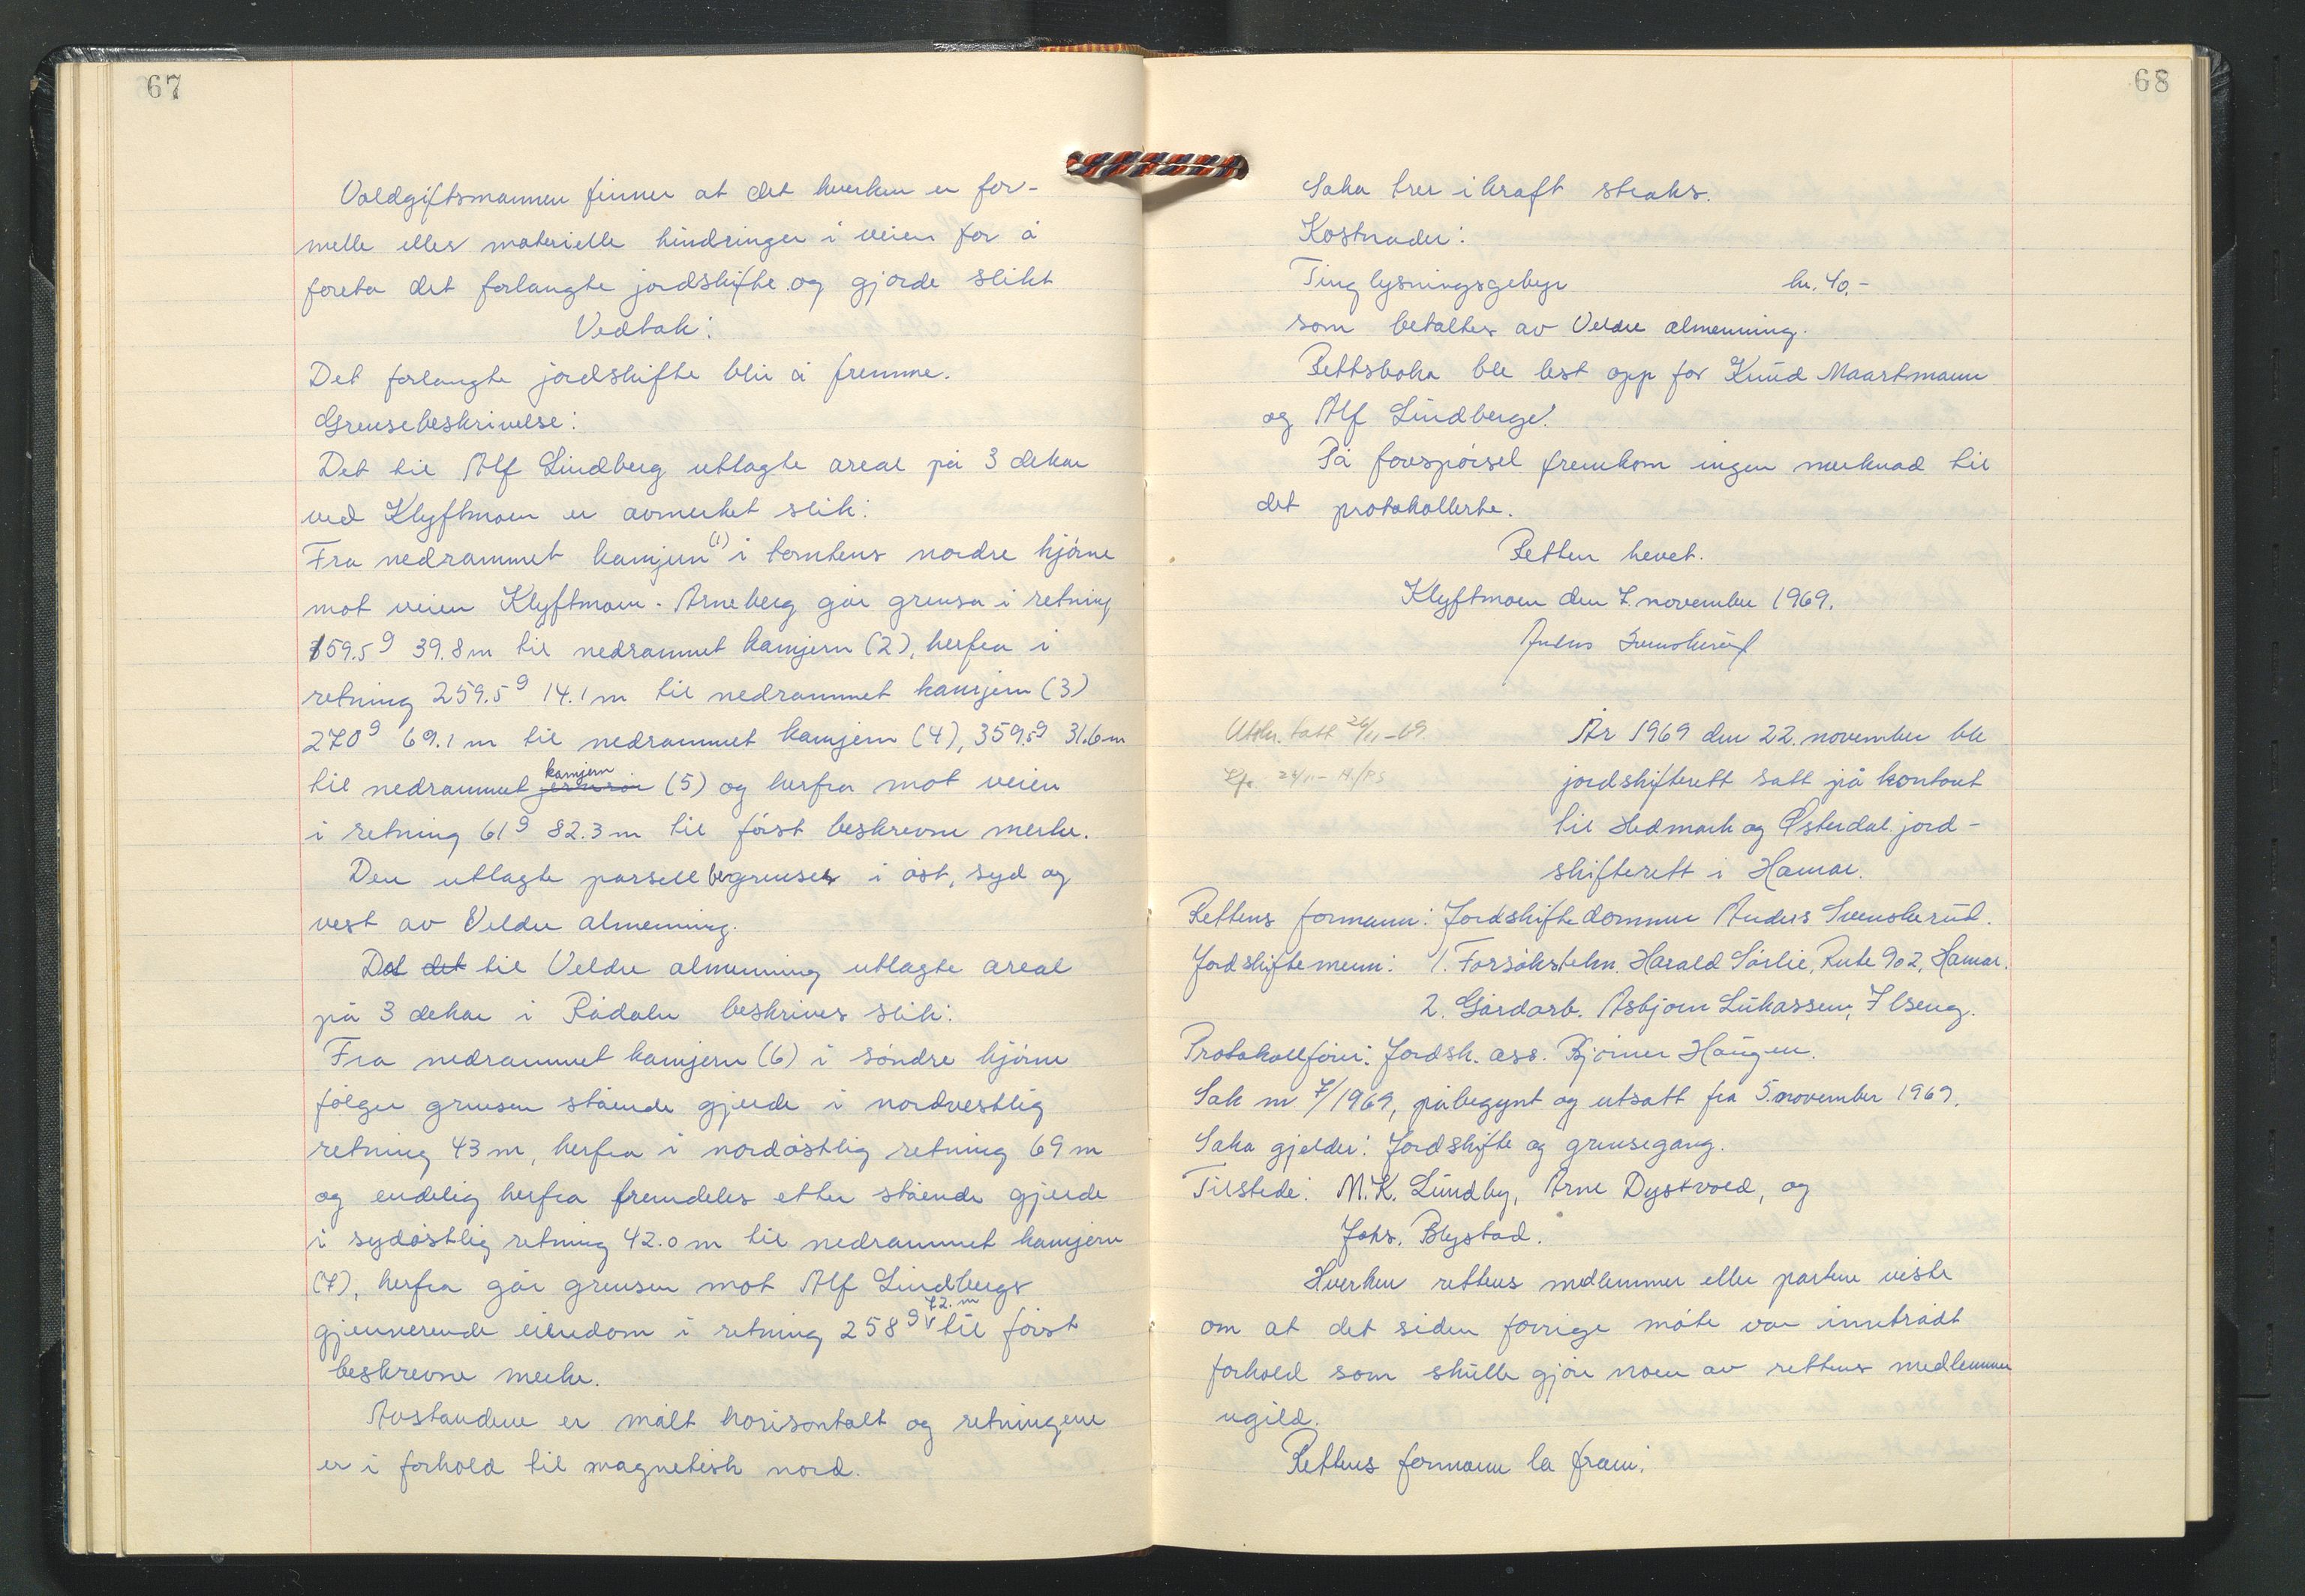 67
Voldgiftsmannen finner at det hverken er for-
melle eller materielle hindringer i veien for å
foreta det forlangte jordskifte og gjorde slikt
Vedtak:
Det forlangte jordskifte blir å fremme.
Grensebeskrivelse:
Det til Alf Lindberg utlagte areal på 3 dekar
ved Klyftmoen er avmerket slik:
Fra nedrammet kamjern (1) i tomtens nordre hjørne
mot veien Klyftmoen - Arneberg går grensa i retning
159.5g 39.8 m til nedrammet kamjern (2), herfra i
retning 259.5g 14.1 m til nedrammet kamjern (3)
270g 69.1 m til nedrammet kamjern (4), 359.5g 31.6 m
til nedrammet kamjern (5) og herfra mot veien
i retning 61g 82.3 m til først beskrevne merke.
Den utlagte parsell begrenses i øst, syd og
vest av Veldre almenning.
Det det til Veldre almenning utlagte areal
på 3 dekar i Rådalen beskrives slik:
Fra nedrammet kamjern (6) i søndre hjørne
følger grensen stående gjerde i nordvestlig
retning 43 m, herfra i nordøstlig retning 69 m
og endelig herfra fremdeles etter stående gjerde
i sydøstlig retning 42.0 m til nedrammet kamjern
(7), herfra går grensen mot Alf Lindbergs
gjenværende eiendom i retning 258g 72. m til først
beskrevne merke.
Avstandene er målt horisontalt og retningene
er i forhold til magnetisk nord.
68
Saka trer i kraft straks.
Kostnader:
Tinglysningsgebyr kr. 40,-
som betaltes av Veldre almenning.
Rettsboka ble lest opp for Knud Maartmann
og Alf Lindberg.
På forespørsel fremkom ingen merknad til
det protokollerte.
Retten hevet.
Klyftmoen den 7. november 1969.
Anders Svenskerud
Utskr. tatt 26/11-69
År 1969 den 22. november ble
jordskifterett satt på kontoret
til Hedmark og Østerdal jord-
skifterett i Hamar.
Rettens formann: Jordskiftedommer Anders Svenskerud.
Jordskiftemenn: 1. Forsøkstekn. Harald Sørlie, Rute 902, Hamar.
2. Gårdarb. Asbjørn Lukassen, Ilseng.
Protokollfører: Jordsk. ass. Bjørner Haugen.
Sak nr 7/1969, påbegynt og utsatt fra 5. november 1969.
Saka gjelder: Jordskifte og grensegang.
Tilstede: M.K. Lundby, Arne Dystvold, og
Johs. Blystad.
Hverken rettens medlemmer eller partene visste
om at det siden forrige møte var inntrådt
forhold som skulle gjøre noen av rettens medlemmer
ugild.
Rettens formann la fram: